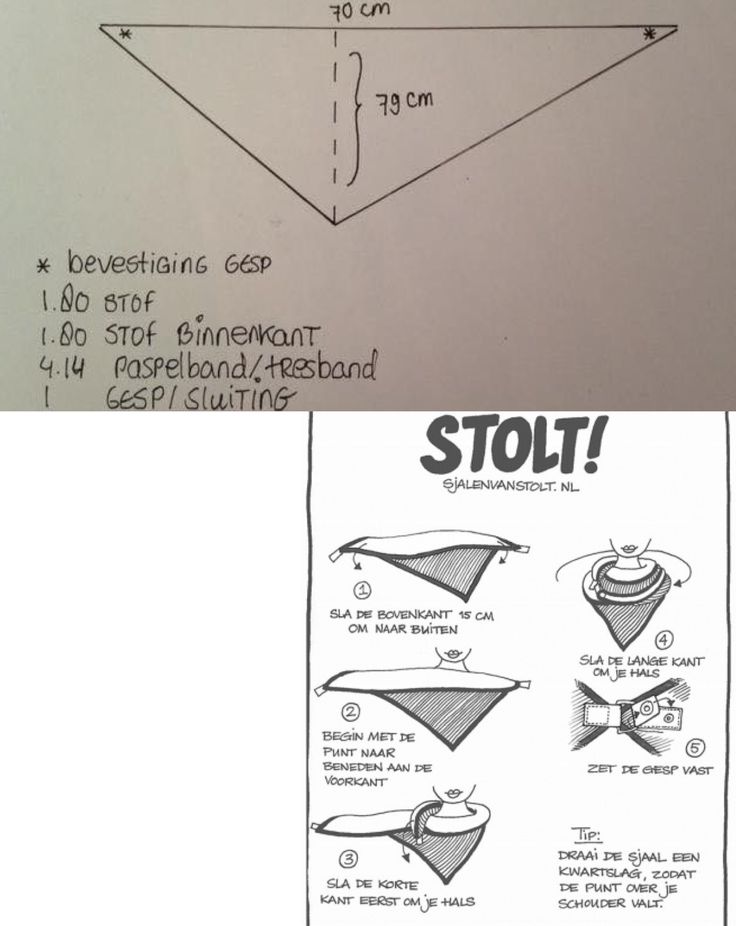 70 cm
*
*
79 cm
* bevestiging GESP
1.80 STOF
1.80 STOF Binnenkant
4.14 Paspelband/tresband
1 GESP/Sluiting
STOLT!
SJALENVANSTOLT.NL
1
SLA DE BOVENKANT 15 CM
OM NAAR BUITEN
2
BEGIN MET DE
PUNT NAAR
BENEDEN AAN DE
VOORKANT
3
SLA DE KORTE
KANT EERST OM JE HALS
4
SLA DE LANGE KANT
OM JE HALS
5
ZET DE GESP VAST
TIP:
DRAAI DE SJAAL EEN
KWARTSLAG, ZODAT
DE PUNT OVER JE
SCHOUDER VALT.